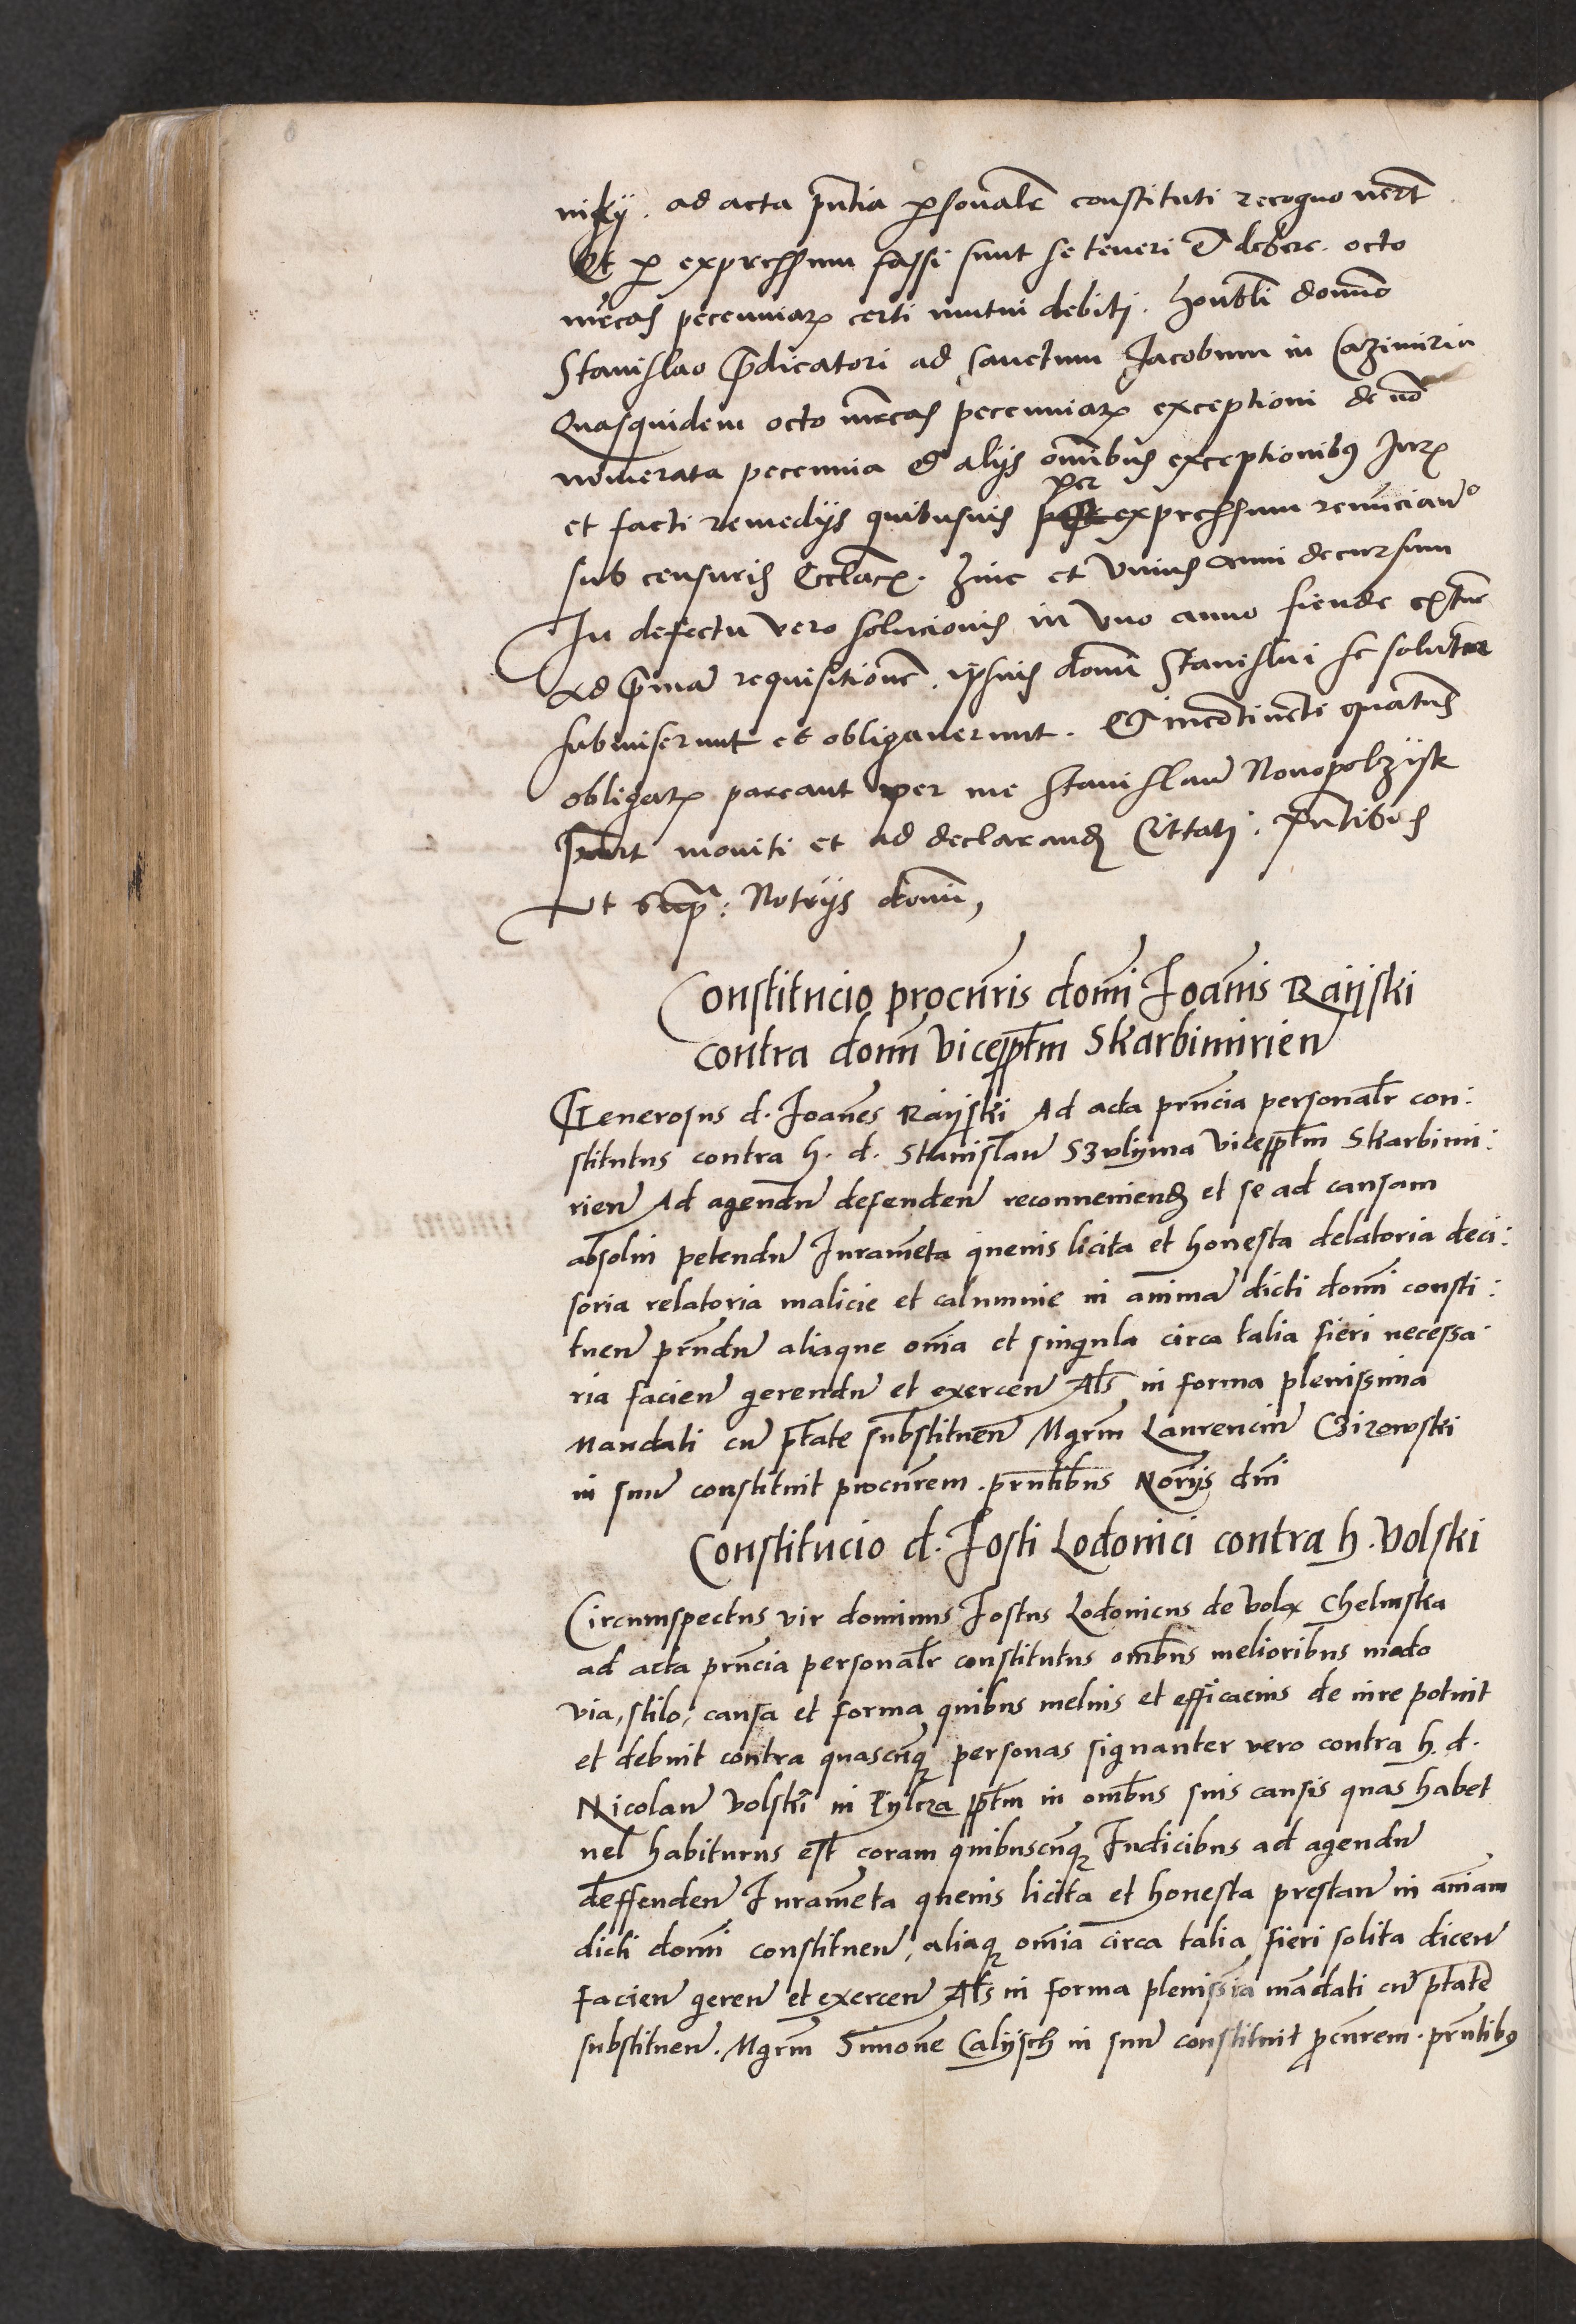 ad acta pn̄tia ꝑsonalr̄ constituti recogno uert̄
Et ꝑ expressum fassi sunt se teneri et debere. octo
mr̄cas pecuniaꝝ certi mutui debiti. honbl̄i domīo
Stanislao p̄dicatori ad sanctum Jacobum in Cazimiria
Quasquidem octo mr̄cas pecuniaꝝ exceptioni de nō
numerata pecunia et alijs om̄ibus exceptionibꝯ Iurꝭ
et facti remedijs quibusuis per expressum renunciaue
sub censuris Eccl̄acꝭ. hinc et vnius anni decursum
In defectu vero solucionis in vno anno fiende extūc
Ad p̄mā requisitionē. ipsius domī Stanislai se solutur
submiserunt et obligauerunt. Et incōtinēti quatūs
obligatꝭ pareant per me Stanislaū Nouopolzijsk
moniti et ad declarandꝭ Cittati. pn̄tibus
Vt sup̄ª: Notrijs domī,
Constitucio procur̄ris domī Joannis Raijski
contra domū viceppt̄m Skarbimirien̄
Generosus d. Joanes Raijski Ad acta prn̄cia personalr̄ con:
stitutus contra h. d. Stanislaū Szulijma viceppt̄m Skarbimi:
rien̄ Ad agendū defenden̄ reconueniendꝭ et se ad causam
absolui petendū Iuramēta queuis licita et honesta delatoria deci:
soria relatoria malicie et calumnie in animā dicti domī consti:
tuen̄ prn̄dū aliaque om̄ia et singula circa talia fieri necessa
ria facien̄ gerendū et exercen̄ Al̄s in forma plenissima
Mandati cū pt̄ate substituen̄ Mgr̄m Laurenciū Czizowski
in suū constituit procur̄rem. prn̄tibus Nor̄ijs dm̄i
Constitucio d. Josti Lodouici contra h. Volski
Circumspectus vir dominus Jostus Lodouicus de Vola Chelmska
ad acta prn̄cia personalr̄ constitutus om̄bus melioribus modo
via, stilo, causa et forma quibus melius et efficacius de iure potuit
et debuit contra quascūqꝫ personas signanter vero contra h. d.
Nicolaū Volski in Pylcza ppt̄m in om̄bus suis causis quas habet
uel habiturus est coram quibuscūqꝫ Iudicibus ad agendū
deffenden̄ Iuramēta queuis licita et honesta prestan̄ in aīam
dicti domī constituen̄, aliaqꝫ om̄ia circa talia fieri solita dicen̄
facien̄ geren̄ et exercen̄ Al̄s in forma plenissīa mādati cū pt̄ate
substituen̄. Mgr̄m Simonē Calijsch in suū constituit ꝓcur̄rem. prn̄tibꝯ